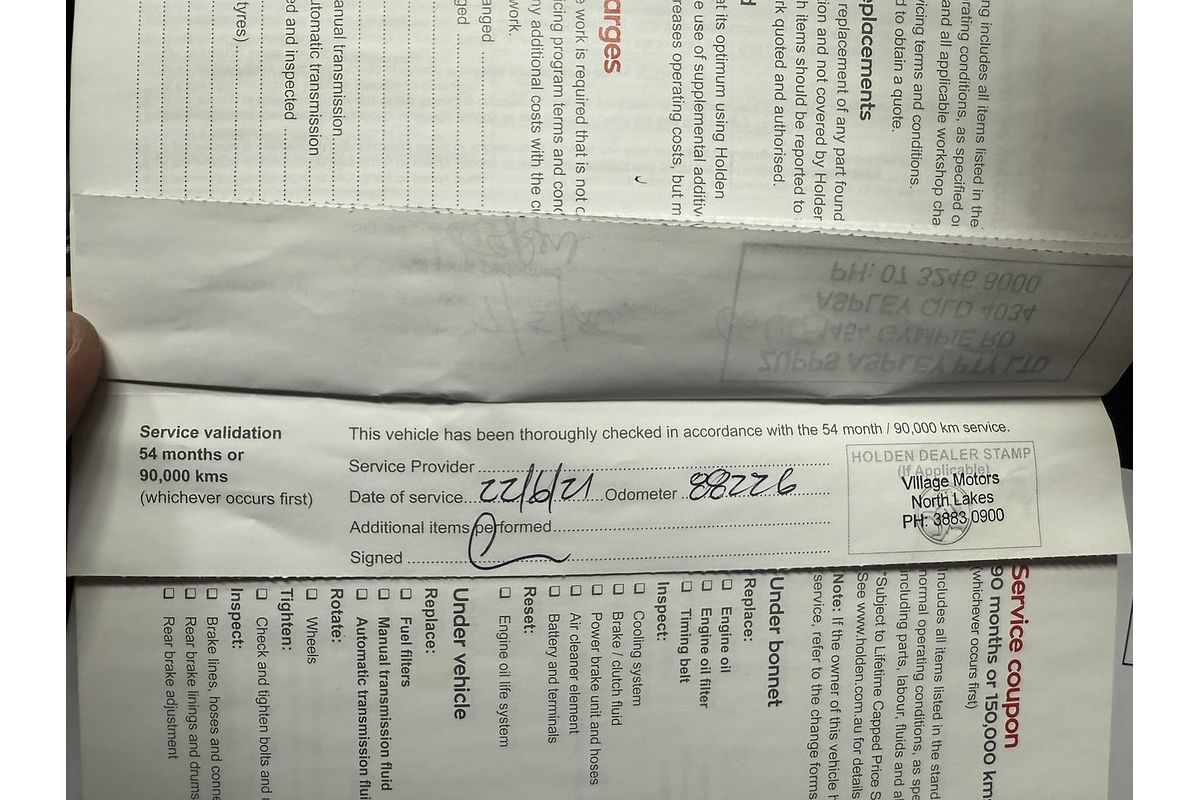 Service validation
54 months or
90,000 kms
(whichever occurs first)
This vehicle has been thoroughly checked in accordance with the 54 month / 90,000 km service.
Service Provider
Date of service 22/6/21 Odometer 88226
Additional items performed
Signed
HOLDEN DEALER STAMP
(If Applicable)
Village Motors
North Lakes
PH: 3883 0900
ZUPPS ASPLEY PTY LTD
1454 GYMPIE RD
ASPLEY QLD 4034
PH: 07 3246 8000
ng includes all items listed in the
rating conditions, as specified
and all applicable workshop
icing terms and conditions.
d to obtain a quote.
eplacements
replacement of any part found
ion and not covered by Holden
h items should be reported to
rk quoted and authorised.
d
at its optimum using Holden
e use of supplemental
reases operating costs, but
arges
e work is required that is not
icing program terms and
ny additional costs with the
work.
anged
ged
anual transmission
utomatic transmission
ed and inspected
tyres)
Service coupon
90 months or 150,000 km
(whichever occurs first)
Includes all items listed in the
normal operating conditions, as
including parts, labour, fluids and
*Subject to Lifetime Capped Price
See www.holden.com.au for details
Note: If the owner of this vehicle
service, refer to the change forms
Under bonnet
Replace:
☐ Engine oil
☐ Engine oil filter
☐ Timing belt
Inspect:
☐ Cooling system
☐ Brake / clutch fluid
☐ Power brake unit and hoses
☐ Air cleaner element
☐ Battery and terminals
Reset:
☐ Engine oil life system
Under vehicle
Replace:
☐ Fuel filters
☐ Manual transmission fluid
☐ Automatic transmission
Rotate:
☐ Wheels
Tighten:
☐ Check and tighten bolts and
Inspect:
☐ Brake lines, hoses and
☐ Rear brake linings and drums
☐ Rear brake adjustment